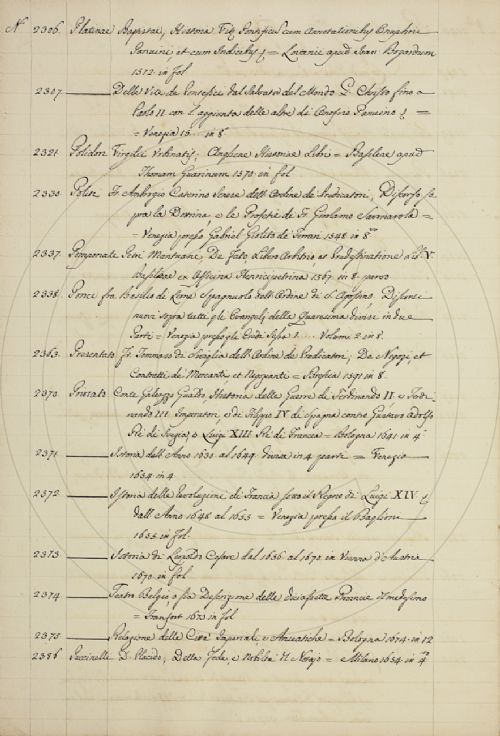 N 2306. Platinae Baptistae, Historia Vitę Pontificũ cum Annotationibus Onuphrii
Panvini, et cum Indicibus = Lovanii apud Joan Bogardum
1572 in fol
2307 Delle Vite de Pontefici dal Salvator del Mondo Christo fino a
Paolo II con l'aggionta delle altre di Onofrio Panvino =
= Venezia 15 in 8º
2321 Polidori Virgilii Urbinatis; Anglicae Historiae Libri = Basileae apud
Thomam Guarinum 1570 in fol
2330 Polite Fr Ambrogio Caterino Senese dell'Ordine de Predicatori; Discorso so
pra la Dottrina, e le Profetie di Fr Girolamo Savonarola =
= Venezia presso Gabriel Giolito de Ferrari 1548 in 8vo
2337 Pomponatii Petri Mantuani De Fato, Libero Arbitrio et Predestinatione Lib. V
Basileae ex Officina Henricpetrina 1567 in 8 parvo
2338 Ponce fra Basilio di Leone Spagnuolo dell'Ordine di S. Agostino; Discorsi
nuovi sopra tutti gli Evangelj della Quaresima divisi in due
Parti = Venezia presso gli Volume 2 in 8.
2363 Presentato Fr Tommaso di Siviglia dell'Ordine de Predicatori; De Negozj, et
Contratti de Mercanti, et Negozianti = Brescia 1591 in 8
2370 Priorato Conte Galeazzo Gualdo, Historia delle Guerre di Ferdinando II e Ferdi
nando III Imperatori, e di Filippo IV di Spagna contro Gustavo Adolfo
Rè di Svezia, e Luigi XIII Rè di Francia = Bologna 1641 in 4
2371 Istoria dell'Anno 1630 al 1649 divisa in 4 parti = Venezia
1654 in 4
2372 Istoria delle Revoluzioni di Francia sotto il Regno di Luigi XIV
dall'Anno 1648 al 1655 = Venezia presso il Baglioni
1655 in fol.
2373 Istoria di Leopoldo Cesare dal 1656 al 1670 in Vienna d'Austria
1670 in fol
2374 Teatro Belgico o sia Descrizione delle diciassette Provincie Medesimo
= Francfort 1673 in fol
2375 Relazione delle Città Imperiali e Anseatiche = Bologna 1674 in 12
2386 Puccinelli D. Placido; Della Fede, e Nobiltà Notajo = Milano 1654 in 4to